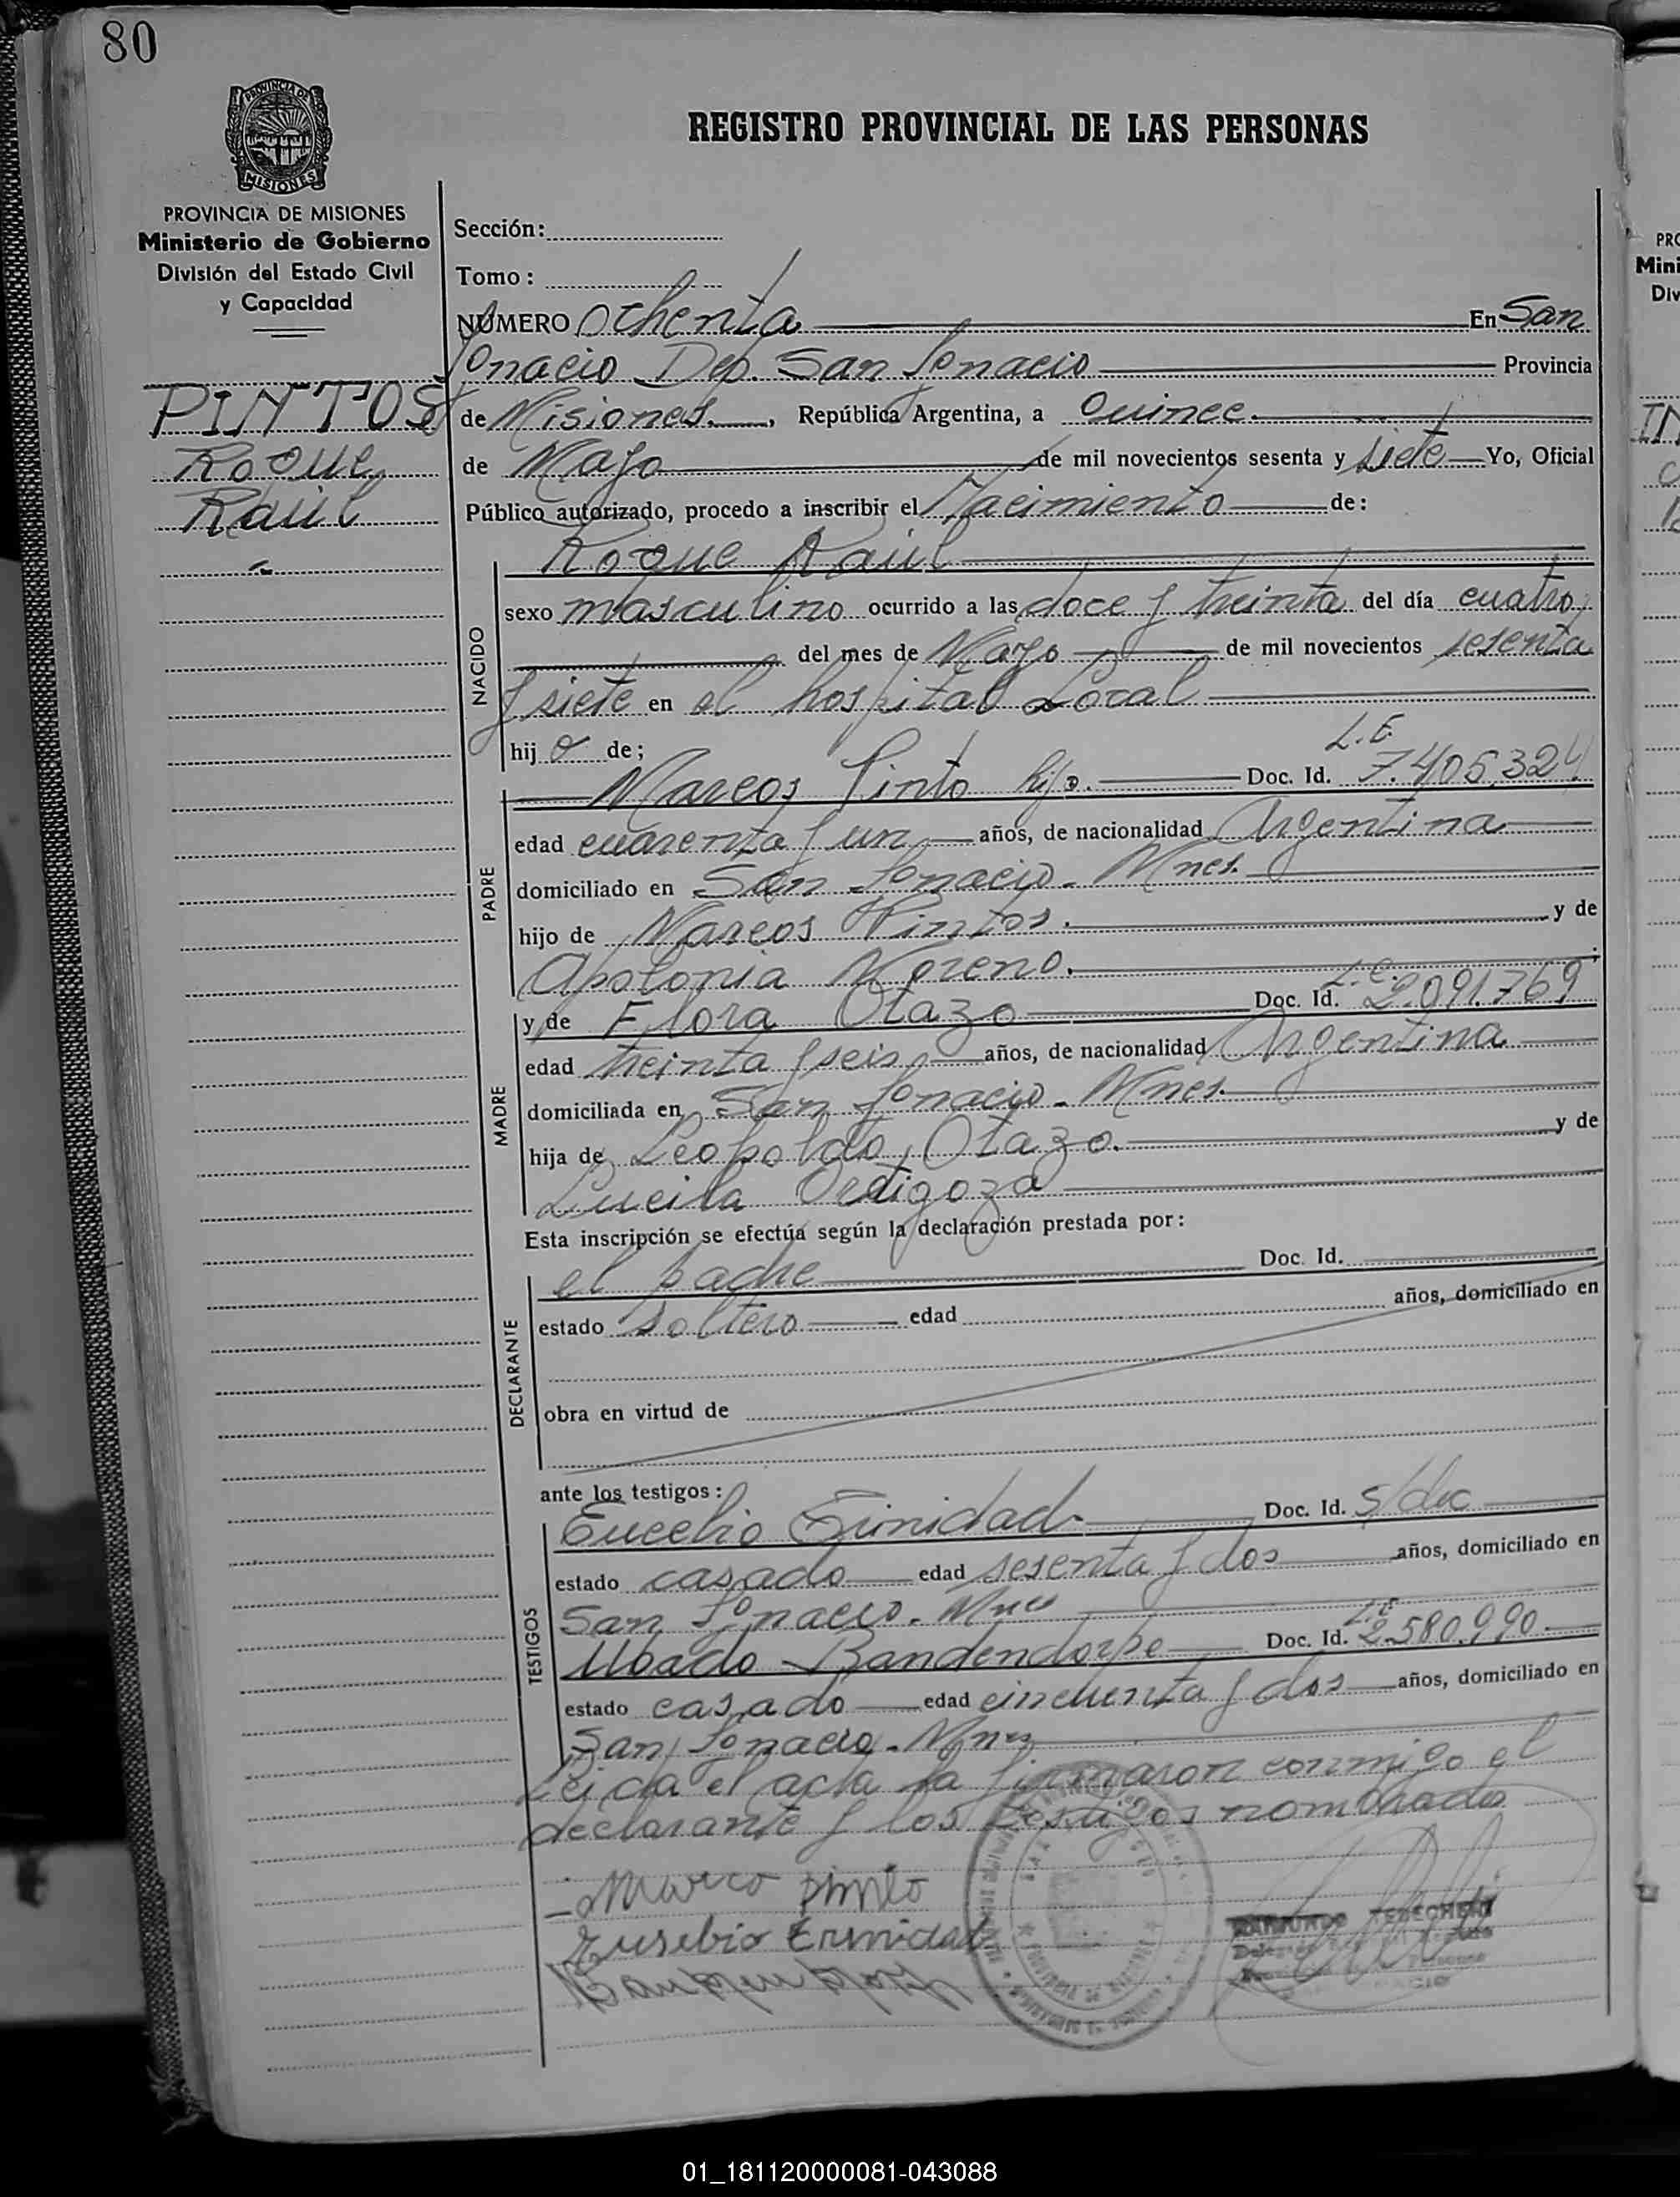 80
PROVINCIA DE MISIONES
REGISTRO PROVINCIAL DE LAS PERSONAS
PROVINCIA DE MISIONES
Ministerio de Gobierno
División del Estado Civil
y Capacidad
PINTOS
Roque
Raúl
Sección:
Tomo:
NÚMERO Ochenta En San
Ignacio Dep. San Ignacio Provincia
de Misiones, República Argentina, a Quince
de Mayo de mil novecientos sesenta y siete Yo, Oficial
Público autorizado, procedo a inscribir el Nacimiento de:
Roque Raúl
NACIDO
sexo masculino ocurrido a las doce y treinta del día cuatro
del mes de Mayo de mil novecientos sesenta
y siete en el hospital Local
hijo de;
L.E.
Marcos Pinto hijo. Doc. Id. 7.405.324
PADRE
edad cuarenta y un años, de nacionalidad Argentina
domiciliado en San Ignacio - Mnes.
hijo de Marcos Pintos. y de
Apolonia Moreno.
MADRE
y de Flora Otazo Doc. Id. L.C. 2.091.769
edad treinta y seis años, de nacionalidad Argentina
domiciliada en San Ignacio - Mnes.
hija de Leopoldo Otazo. y de
Lucila Ortigoza
Esta inscripción se efectúa según la declaración prestada por:
DECLARANTE
el padre Doc. Id.
estado soltero edad años, domiciliado en
obra en virtud de
ante los testigos:
TESTIGOS
Eucebio Trinidad Doc. Id. S/doc
estado casado edad sesenta y dos años, domiciliado en
San Ignacio - Mnes
Ubaldo Bandendorpe Doc. Id. L.E. 2.580.990
estado casado edad cincuenta y dos años, domiciliado en
San Ignacio - Mnes
Leida el acta la firmaron conmigo el
declarante y los testigos nombrados
Marco pinto
Eusebio Trinidad
RAIMUNDO
PRO
Mini
Div
01_181120000081-043088